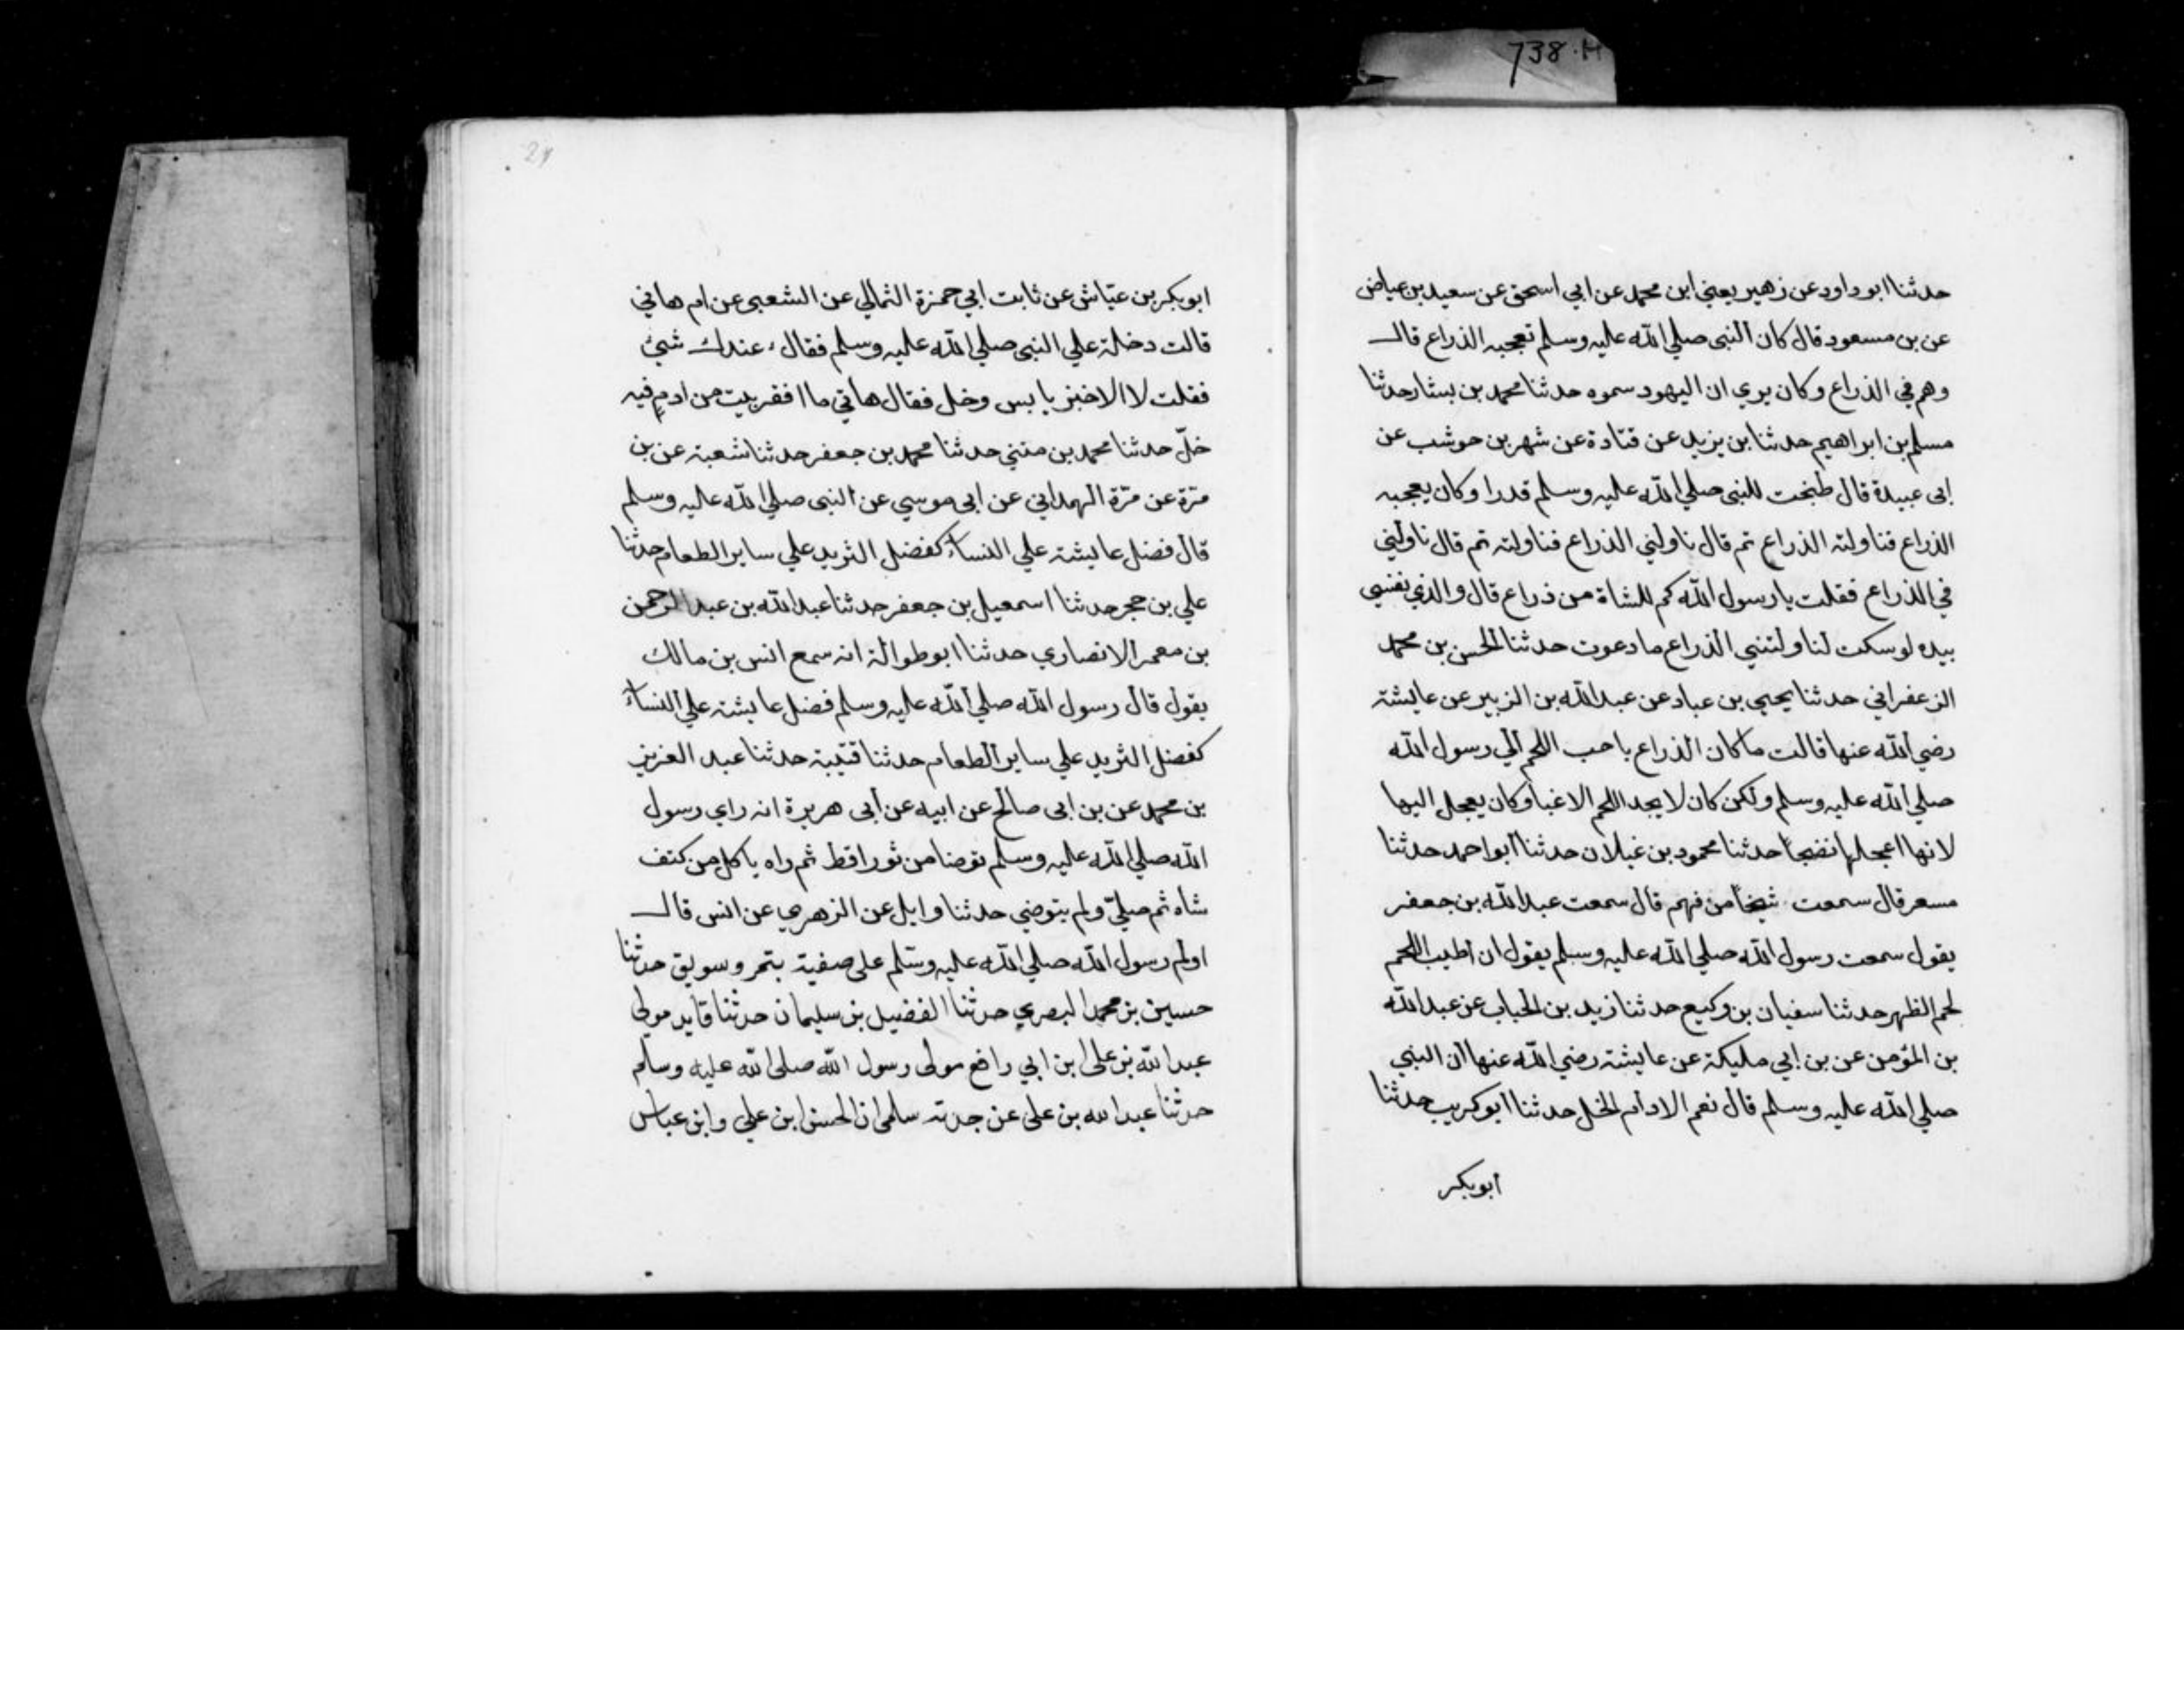 738.H
حدثنا ابو داود عن زهير يعني ابن محمد عن ابي اسحق عن سعيد بن عياض
عن بن مسعود قال كان النبى صلي الله عليه وسلم تعجبه الذراع قال
وهم في الذراع وكان يري ان اليهود سموه حدثنا محمد بن بشار حدثنا
مسلم بن ابراهيم حدثنا بن يزيد عن قتادة عن شهر بن حوشب عن
ابى عبيدة قال طبخت للنبى صلي الله عليه وسلم قدرا وكان يعجبه
الذراع فناولته الذراع ثم قال ناولني الذراع فناولته ثم قال ناولني
في الذراع فقلت يا رسول الله كم للشاة من ذراع قال والذي نفسي
بيده لو سكت لناولتني الذراع ما دعوت حدثنا الحسن بن محمد
الزعفراني حدثنا يحيي بن عباد عن عبد الله بن الزبير عن عايشة
رضي الله عنها قالت ما كان الذراع باحب اللحم الي رسول الله
صلي الله عليه وسلم ولكن كان لا يجد اللحم الا غبا وكان يعجل اليها
لانها اعجلها نضجا حدثنا محمود بن غيلان حدثنا ابو احمد حدثنا
مسعر قال سمعت شيخا من فهم قال سمعت عبد الله بن جعفر
يقول سمعت رسول الله صلي الله عليه وسلم يقول ان اطيب اللحم
لحم الظهر حدثنا سفيان بن وكيع حدثنا زيد بن الحباب عن عبد الله
بن المؤمن عن بن ابي مليكة عن عايشة رضي الله عنها ان النبي
صلي الله عليه وسلم قال نعم الادام الخل حدثنا ابو كريب حدثنا
ابو بكر
ابو بكر بن عيّاش عن ثابت ابي حمزة الثمالي عن الشعبى عن ام هاني
قالت دخلة علي النبى صلي الله عليه وسلم فقال ء عندك شيئ
فقلت لا الا خبز يابس وخل فقال هاتي ما افقر بيت من ادمٍ فيه
خلّ حدثنا محمد بن مثني حدثنا محمد بن جعفر حدثنا شعبة عن بن
مرّة عن مرّة الهمداني عن ابى موسي عن النبى صلي الله عليه وسلم
قال فضل عايشة علي النساء كفضل الثريد علي ساير الطعام حدثنا
علي بن حجر حدثنا اسمعيل بن جعفر حدثنا عبد الله بن عبد الرحمن
بن معمر الانصاري حدثنا ابو طوالة انه سمع انس بن مالك
يقول قال رسول الله صلي الله عليه وسلم فضل عايشة علي النساء
كفضل الثريد علي ساير الطعام حدثنا قتيبة حدثنا عبد العزيز
بن محمد عن بن ابى صالح عن ابيه عن أبى هريرة انه راي رسول
الله صلي الله عليه وسلم توضا من ثور اقط ثم راه ياكل من كتف
شاه ثم صليّ ولم يتوضي حدثنا وايل عن الزهري عن انس قال
اولم رسول الله صلي الله عليه وسلم على صفية بتمر وسويق حدثنا
حسين بن محمد البصري حدثنا الفضيل بن سليمان حدثنا قايد مولى
عبد الله بن على ابن ابي رافع مولى رسول الله صلى الله عليه وسلم
حدثنا عبد الله بن على عن جدته سلمى ان الحسن ابن علي وابن عباس